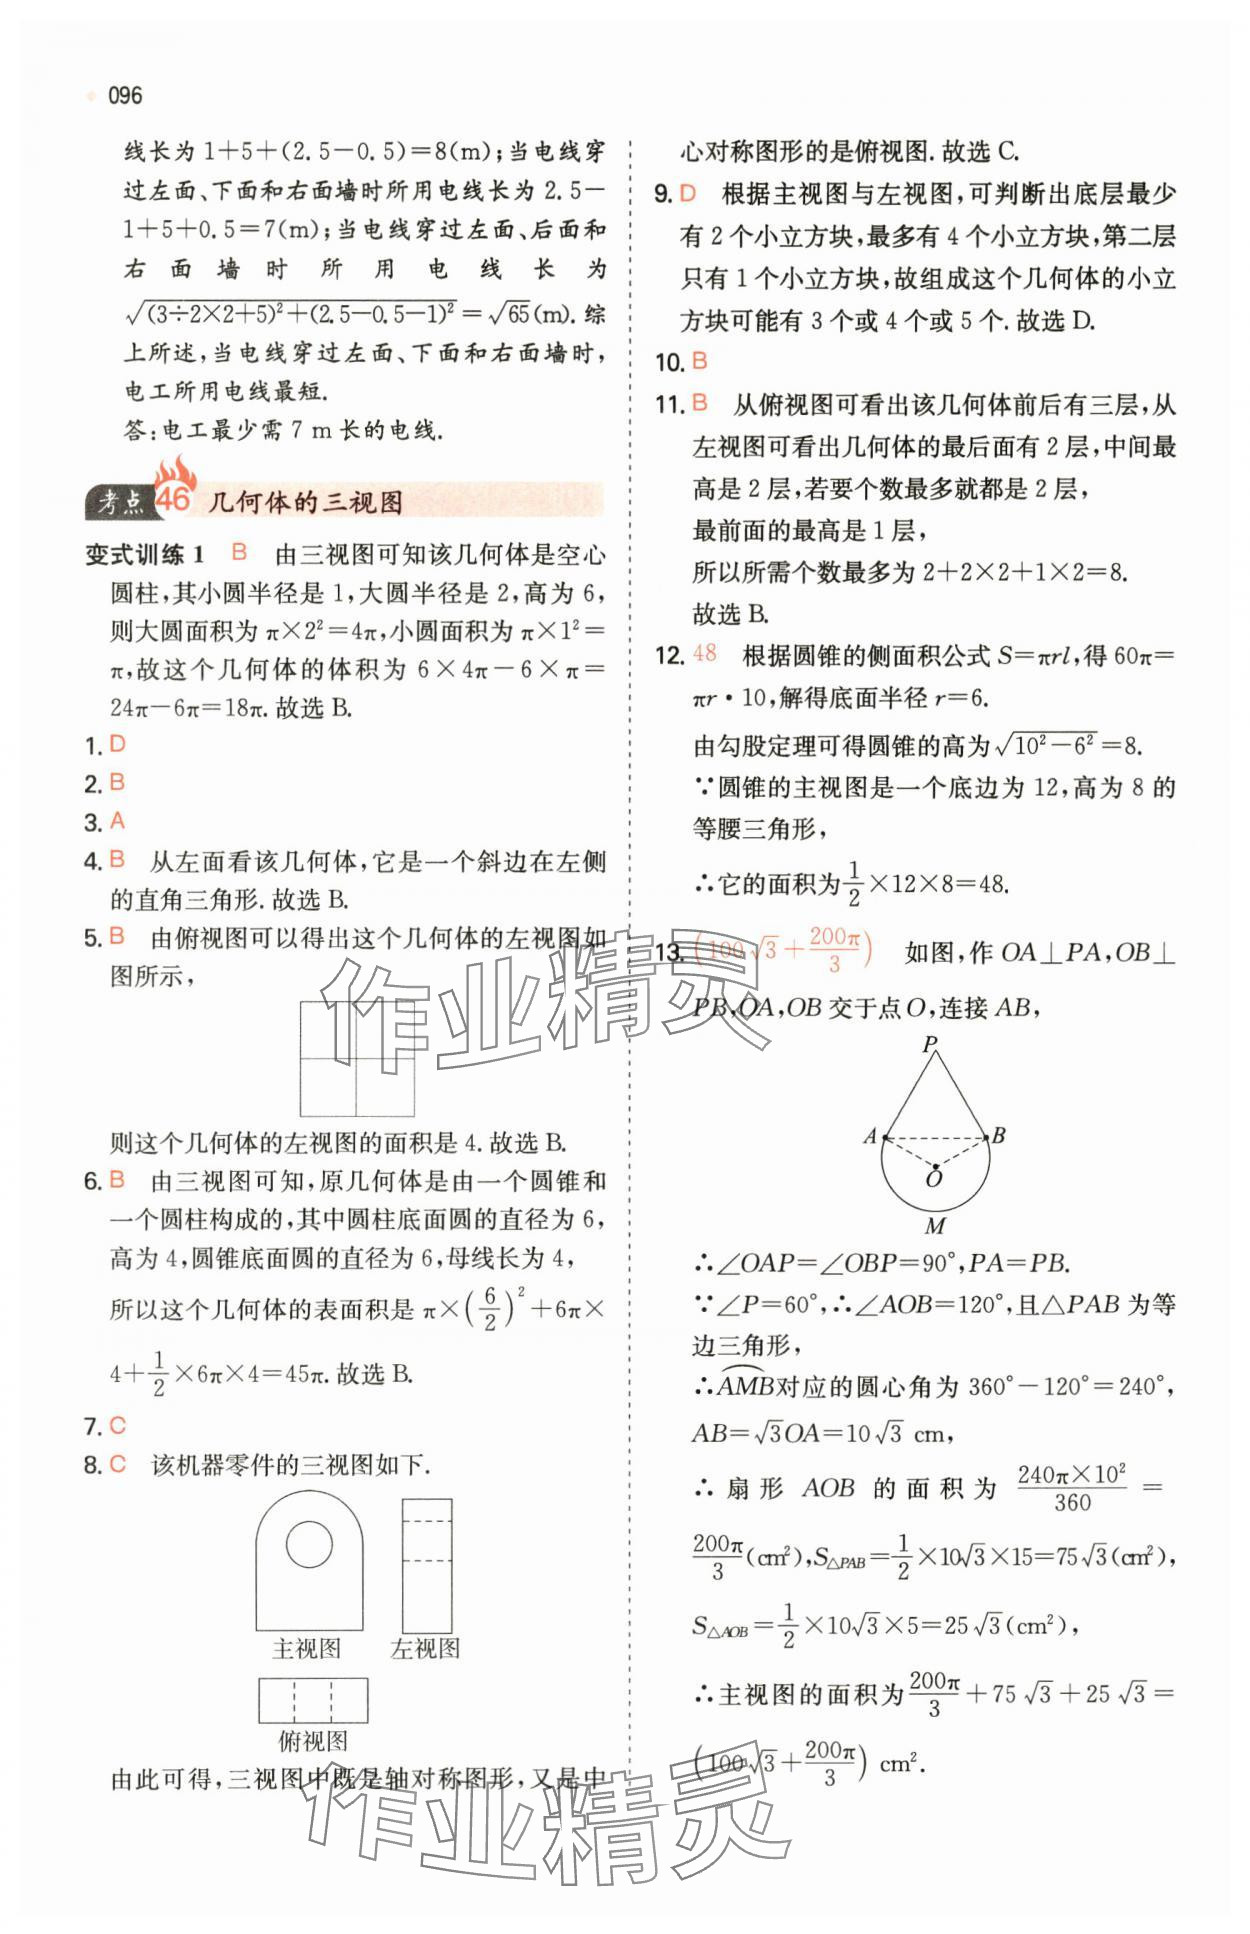 096
线长为1+5+(2.5-0.5)=8(m);当电线穿
过左面、下面和右面墙时所用电线长为2.5-
1+5+0.5=7(m);当电线穿过左面、后面和
右面墙时所用电线长为
√((3÷2×2+5)²+(2.5-0.5-1)²)=√65(m).综
上所述,当电线穿过左面、下面和右面墙时,
电工所用电线最短.
答:电工最少需7 m长的电线.
考点46 几何体的三视图
变式训练1 B 由三视图可知该几何体是空心
圆柱,其小圆半径是1,大圆半径是2,高为6,
则大圆面积为π×2²=4π,小圆面积为π×1²=
π,故这个几何体的体积为6×4π-6×π=
24π-6π=18π.故选B.
1. D
2. B
3. A
4. B 从左面看该几何体,它是一个斜边在左侧
的直角三角形.故选B.
5. B 由俯视图可以得出这个几何体的左视图如
图所示,
则这个几何体的左视图的面积是4.故选B.
6. B 由三视图可知,原几何体是由一个圆锥和
一个圆柱构成的,其中圆柱底面圆的直径为6,
高为4,圆锥底面圆的直径为6,母线长为4,
所以这个几何体的表面积是π×(6/2)²+6π×
4+1/2×6π×4=45π.故选B.
7. C
8. C 该机器零件的三视图如下.
主视图 左视图
俯视图
由此可得,三视图中既是轴对称图形,又是中
心对称图形的是俯视图.故选C.
9. D 根据主视图与左视图,可判断出底层最少
有2个小立方块,最多有4个小立方块,第二层
只有1个小立方块,故组成这个几何体的小立
方块可能有3个或4个或5个.故选D.
10. B
11. B 从俯视图可看出该几何体前后有三层,从
左视图可看出几何体的最后面有2层,中间最
高是2层,若要个数最多就都是2层,
最前面的最高是1层,
所以所需个数最多为2+2×2+1×2=8.
故选B.
12. 48 根据圆锥的侧面积公式S=πrl,得60π=
πr·10,解得底面半径r=6.
由勾股定理可得圆锥的高为√(10²-6²)=8.
∵圆锥的主视图是一个底边为12,高为8的
等腰三角形,
∴它的面积为1/2×12×8=48.
13. (100√3+200π/3) 如图,作OA⊥PA,OB⊥
PB,OA,OB交于点O,连接AB,
P
A B
O
M
∴∠OAP=∠OBP=90°,PA=PB.
∵∠P=60°,∴∠AOB=120°,且△PAB为等
边三角形,
∴⌒AMB对应的圆心角为360°-120°=240°,
AB=√3OA=10√3 cm,
∴扇形AOB的面积为 240π×10²/360 =
200π/3(cm²),S△PAB=1/2×10√3×15=75√3(cm²),
S△AOB=1/2×10√3×5=25√3(cm²),
∴主视图的面积为200π/3+75√3+25√3=
(100√3+200π/3) cm².
作业精灵
作业精灵